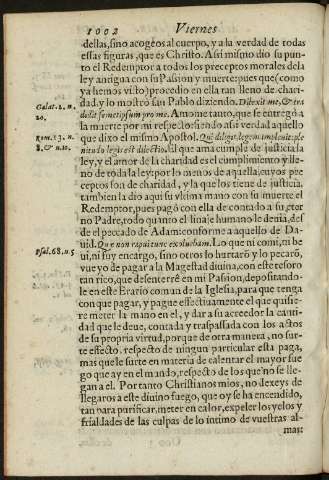 1002 Viernes
dellas, sino acogeos al cuerpo, y a la verdad de todas
essas figuras, que es Christo. Assi mismo dio su pun-
to el Redemptor a todos los preceptos morales de la
ley antigua con su Pasion y muerte: pues que (como
ya hemos visto) procedio en ella tan lleno de chari-
dad, y lo mostrò san Pablo diziendo. Dilexit me, & tra
Galat. 2. n. 20.
didit semetipsum pro me. Amome tanto, que se entregò a
la muerte por mi respecto: siendo assi verdad aquello
que dixo el mismo Apostol. Qui diligit, legem impleuit: ple
Rom. 13. n. 8. & n. 10.
nitudo legis est dilectio. El que ama cumple de justicia la
ley, y el amor de la charidad es el cumplimiento y lle-
no de toda la ley: por lo menos de aquella, cuyos pre
ceptos son de charidad, y la que los tiene de justicia,
tambien la dio aqui su vltima mano con su muerte el
Redemptor, pues pagò con ella de contado a su eter
no Padre, todo quanto el linaje humano le deuia, des
de el peccado de Adam: conforme a aquello de Da-
uid. Que non rapui tunc exoluebam. Lo que ni comi, ni be
Psal. 68. n. 5
ui, ni fuy encargo, sino otros lo hurtarõ y lo pecarõ,
vue yo de pagar a la Magestad diuina, con este tesoro
tan rico, que desenterrè en mi Passion, depositando-
le en este Erario comun de la Iglesia, para que tenga
con que pagar, y pague effectiuamente el que quisie-
re meter la mano en el, y dar a su acreedor la canti-
dad que le deue, contada y traspassada con los actos
de su propria virtud, porque de otra manera, no sur-
te effecto, respecto de ningun particular esta paga,
mas que le surte en materia de calentar el mayor fue
go que ay en el mundo, respecto de los que no se lle-
gan a el. Por tanto Christianos mios, no dexeys de
llegaros a este diuino fuego, que oy se ha encendido,
tan para purificar, meter en calor, expeler los yelos y
frialdades de las culpas de lo intimo de vuestras al-
mas: